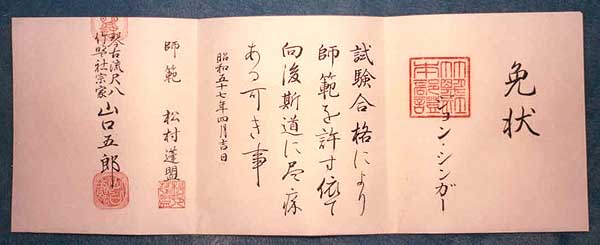 免状
ジョン・シンガー
試験合格により
師範を許す依て
向後斯道に尽瘁
ある可き事
昭和五十七年四月吉日
師範 松村蓬盟
琴古流尺八
竹盟社宗家 山口五郎